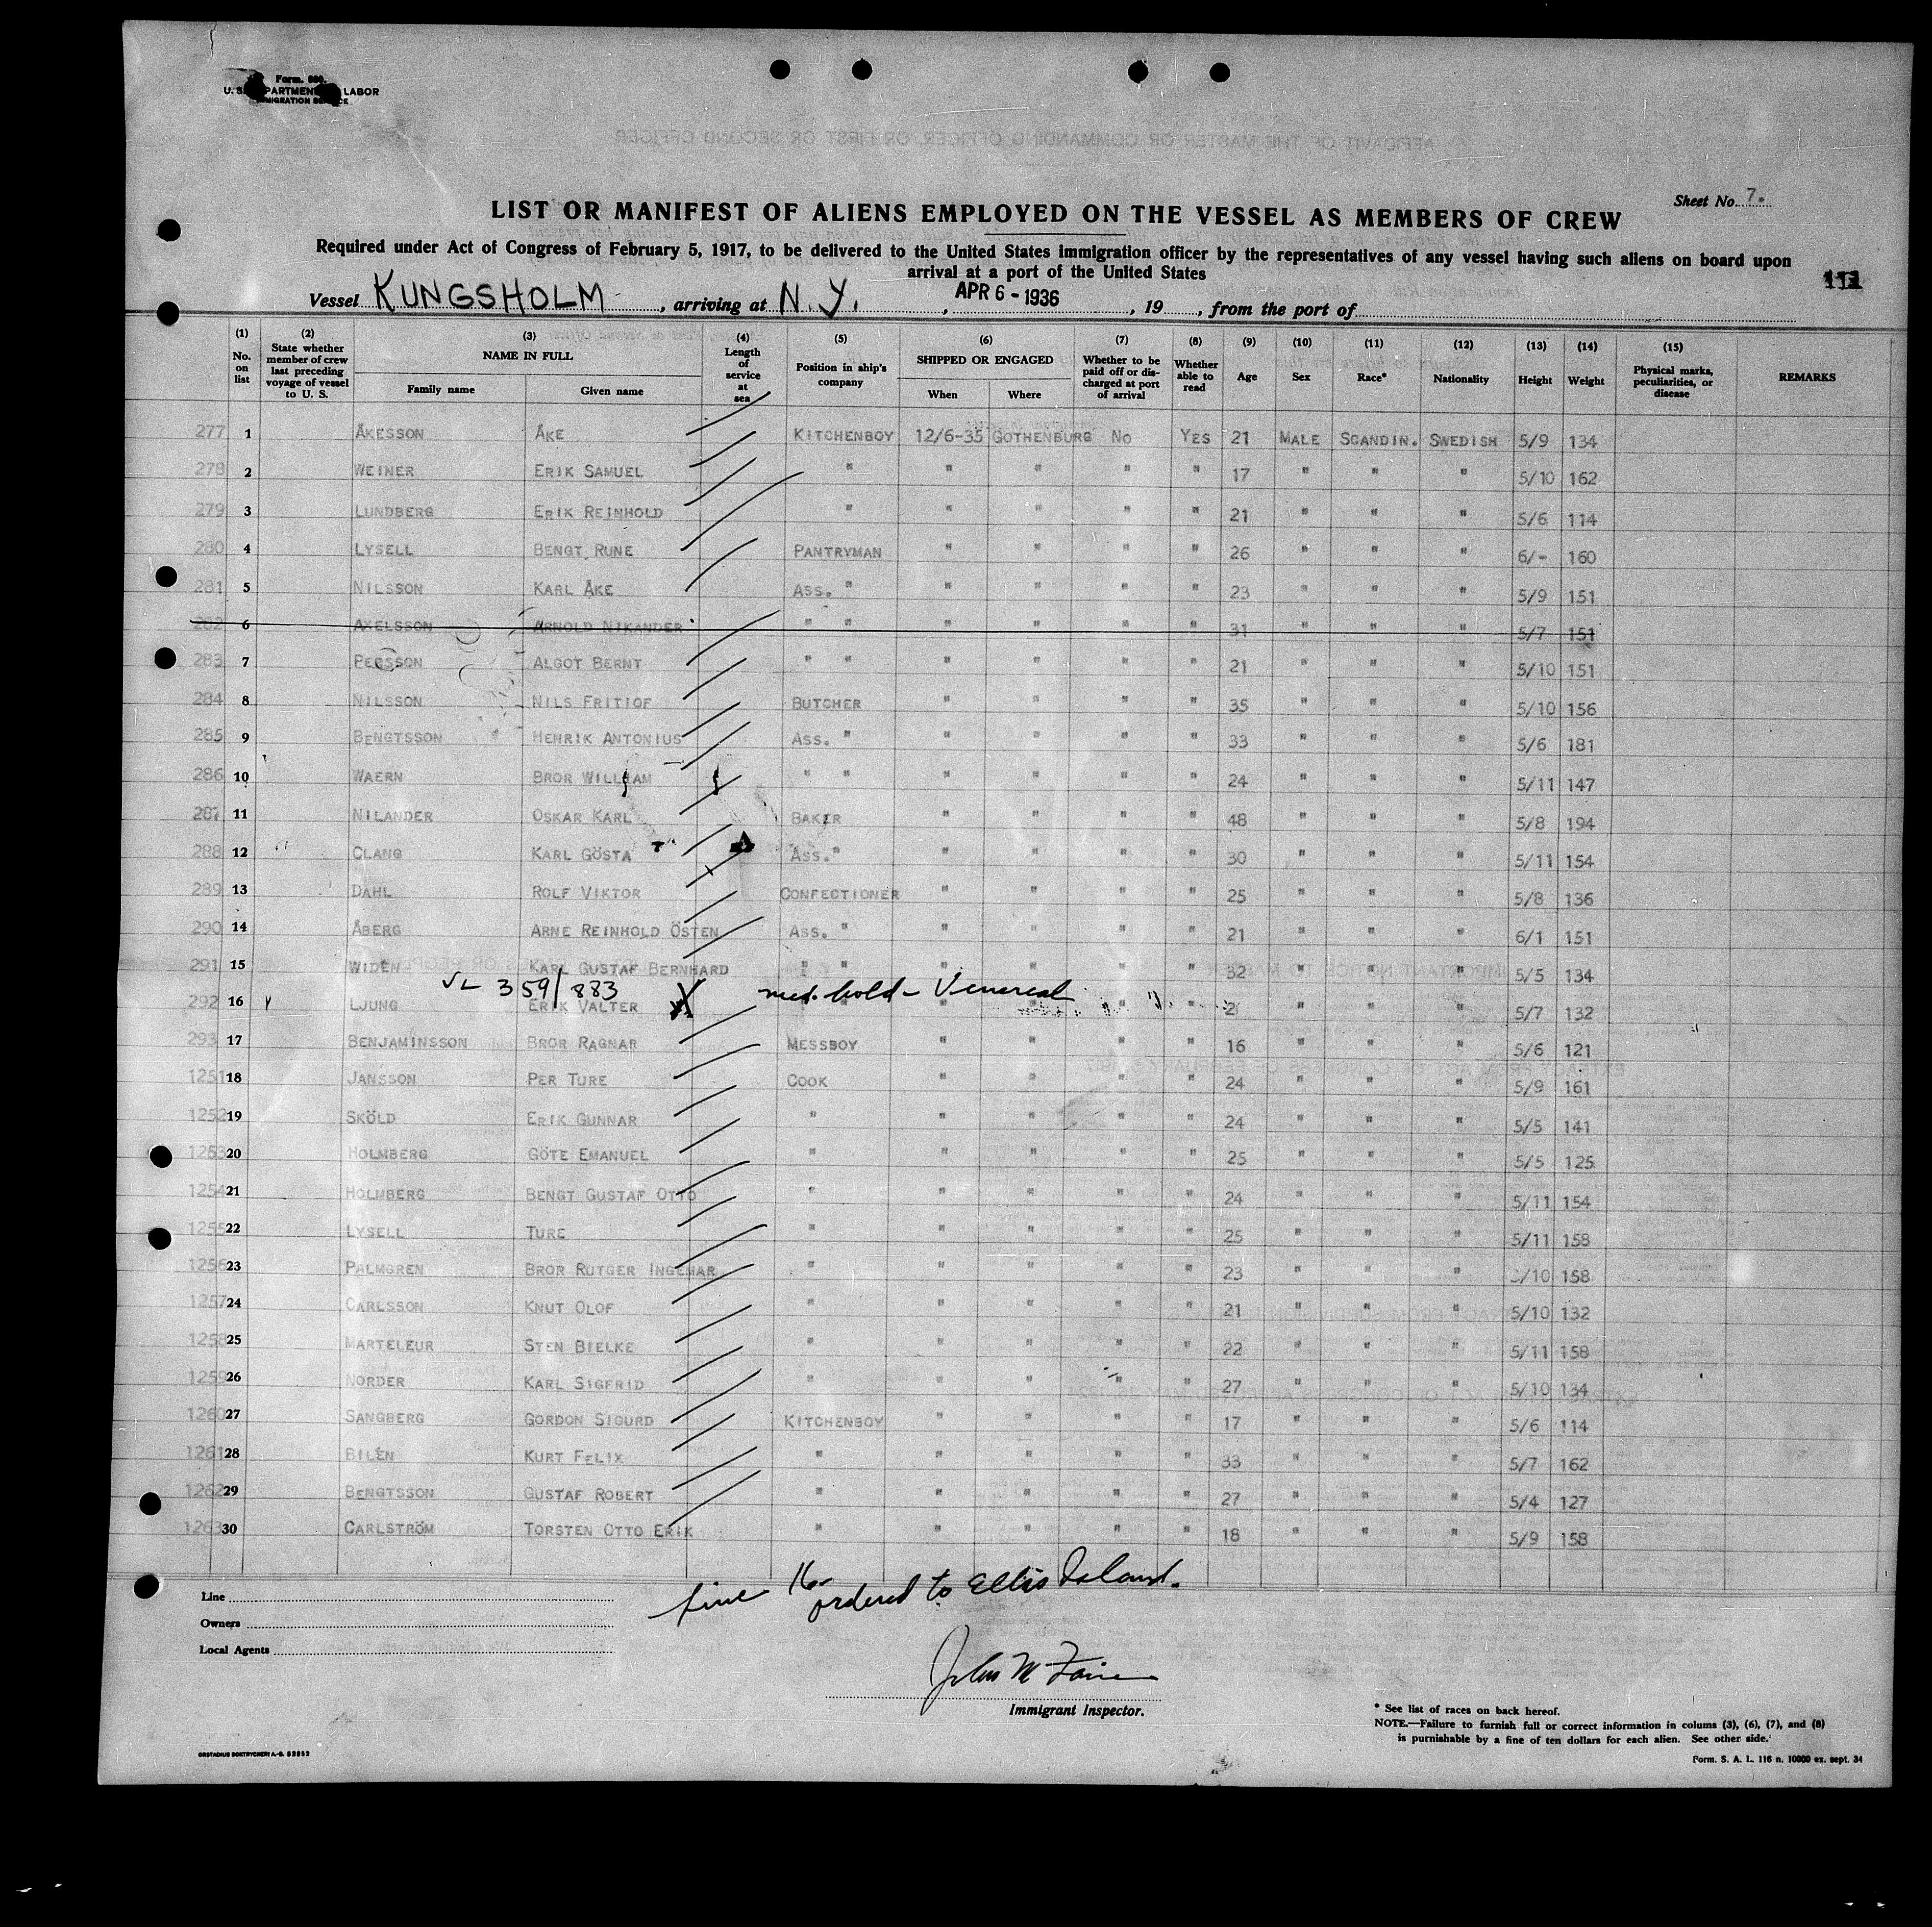 Form. 680.
U. S. DEPARTMENT LABOR
IMMIGRATION SERVICE
Sheet No. 7.
LIST OR MANIFEST OF ALIENS EMPLOYED ON THE VESSEL AS MEMBERS OF CREW
Required under Act of Congress of February 5, 1917, to be delivered to the United States immigration officer by the representatives of any vessel having such aliens on board upon
arrival at a port of the United States
111
Vessel KUNGSHOLM, arriving at N.Y., APR 6 - 1936, 19, from the port of
(1) No. on list (2) State whether member of crew last preceding voyage of vessel to U. S. (3) NAME IN FULL Family name Given name (4) Length of service at sea (5) Position in ship's company (6) SHIPPED OR ENGAGED When Where (7) Whether to be paid off or discharged at port of arrival (8) Whether able to read (9) Age (10) Sex (11) Race* (12) Nationality (13) Height (14) Weight (15) Physical marks, peculiarities, or disease REMARKS
277 1 ÅKESSON ÅKE KITCHENBOY 12/6-35 GOTHENBURG NO YES 21 MALE SCANDIN. SWEDISH 5/9 134
278 2 WEINER ERIK SAMUEL " " " " " 17 " " " 5/10 162
279 3 LUNDBERG ERIK REINHOLD " " " " " 21 " " " 5/6 114
280 4 LYSELL BENGT RUNE PANTRYMAN " " " " 26 " " " 6/- 160
281 5 NILSSON KARL ÅKE ASS. " " " " " 23 " " " 5/9 151
282 6 AXELSSON ARNOLD NIKANDER " " " " " " 31 " " " 5/7 151
283 7 PERSSON ALGOT BERNT " " " " " " 21 " " " 5/10 151
284 8 NILSSON NILS FRITIOF BUTCHER " " " " 35 " " " 5/10 156
285 9 BENGTSSON HENRIK ANTONIUS ASS. " " " " " 33 " " " 5/6 181
286 10 WAERN BROR WILLIAM " " " " " " 24 " " " 5/11 147
287 11 NILANDER OSKAR KARL BAKER " " " " 48 " " " 5/8 194
288 12 CLANG KARL GÖSTA ASS. " " " " " 30 " " " 5/11 154
289 13 DAHL ROLF VIKTOR CONFECTIONER " " " " 25 " " " 5/8 136
290 14 ÅBERG ARNE REINHOLD ÖSTEN ASS. " " " " " 21 " " " 6/1 151
291 15 WIDÉN KARL GUSTAF BERNHARD " " " " " " 32 " " " 5/5 134
359/883 X med. hold - Venereal
292 16 LJUNG ERIK VALTER " " " 5/7 132
293 17 BENJAMINSSON BROR RAGNAR MESSBOY " " " " 16 " " " 5/6 121
1251 18 JANSSON PER TURE COOK " " " " 24 " " " 5/9 161
1252 19 SKÖLD ERIK GUNNAR " " " " " 24 " " " 5/5 141
1253 20 HOLMBERG GÖTE EMANUEL " " " " " 25 " " " 5/5 125
1254 21 HOLMBERG BENGT GUSTAF OTTO " " " " " 24 " " " 5/11 154
1255 22 LYSELL TURE " " " " " 25 " " " 5/11 158
1256 23 PALMGREN BROR RUTGER INGEMAR " " " " " 23 " " " 5/10 158
1257 24 CARLSSON KNUT OLOF " " " " " 21 " " " 5/10 132
1258 25 MARTELEUR STEN BIELKE " " " " " 22 " " " 5/11 158
1259 26 NORDER KARL SIGFRID " " " " " 27 " " " 5/10 134
1260 27 SANGBERG GORDON SIGURD KITCHENBOY " " " " 17 " " " 5/6 114
1261 28 BILÉN KURT FELIX " " " " " 33 " " " 5/7 162
1262 29 BENGTSSON GUSTAF ROBERT " " " " " 27 " " " 5/4 127
1263 30 CARLSTRÖM TORSTEN OTTO ERIK " " " " " 18 " " " 5/9 158
line 16- ordered to Ellis Island.
Line
Owners
Local Agents
John M
Immigrant Inspector.
* See list of races on back hereof.
NOTE.—Failure to furnish full or correct information in colums (3), (6), (7), and (8)
is punishable by a fine of ten dollars for each alien. See other side.
ORSTADIUS BOKTRYCKERI A.-B. 52852
Form. S. A. L. 116 n. 10000 ex. sept. 34